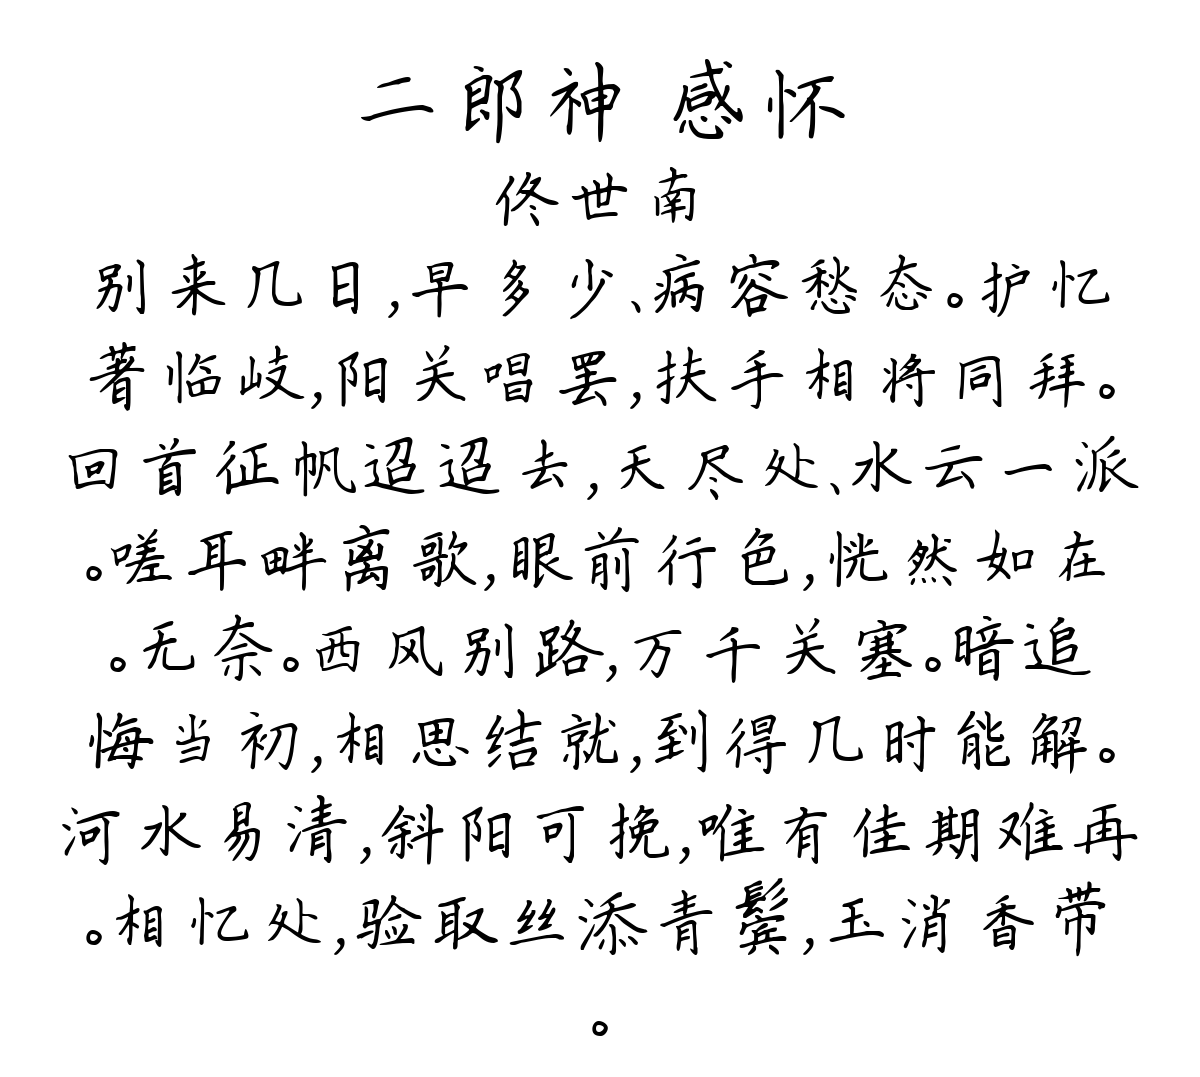 二郎神 感怀
佟世南
别来几日,早多少、病容愁态。护忆
著临岐,阳关唱罢,扶手相将同拜。
回首征帆迢迢去,天尽处、水云一派
。嗟耳畔离歌,眼前行色,恍然如在
。无奈。西风别路,万千关塞。暗追
悔当初,相思结就,到得几时能解。
河水易清,斜阳可挽,唯有佳期难再
。相忆处,验取丝添青鬓,玉消香带
。